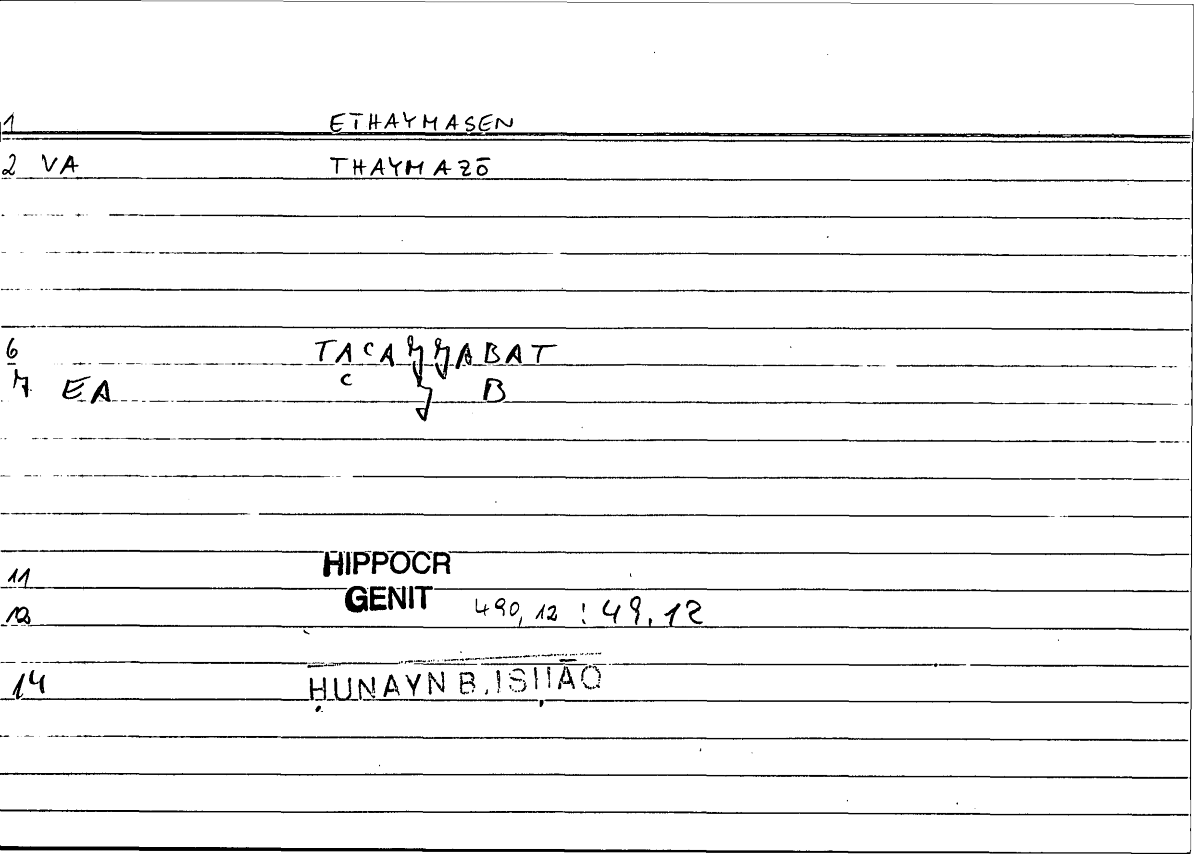 1 ETHAYMASEN
2 VA THAYMAZŌ
6 TAcAJJABAT
7 EA c J B
11 HIPPOCR
12 GENIT 490,12 : 49,12
14 ḤUNAYN B.ISḤĀQ